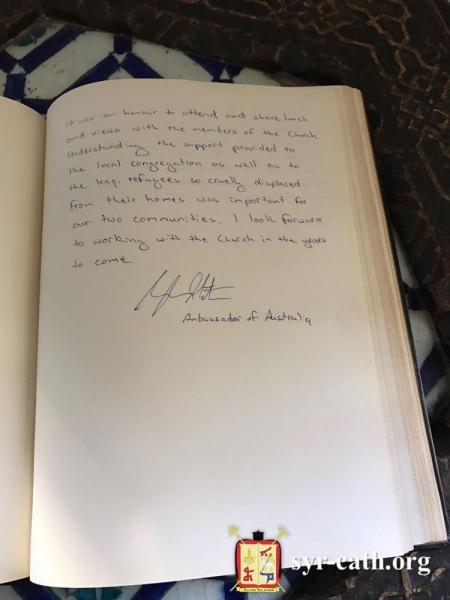 It was an honour to attend and share lunch
and views with the members of the Church
Understanding the support provided to
the local congregation as well as to
the Iraqi refugees so cruelly displaced
from their homes was important for
our two communities. I look forward
to working with the Church in the years
to come
Ambassador of Australia
syr-cath.org